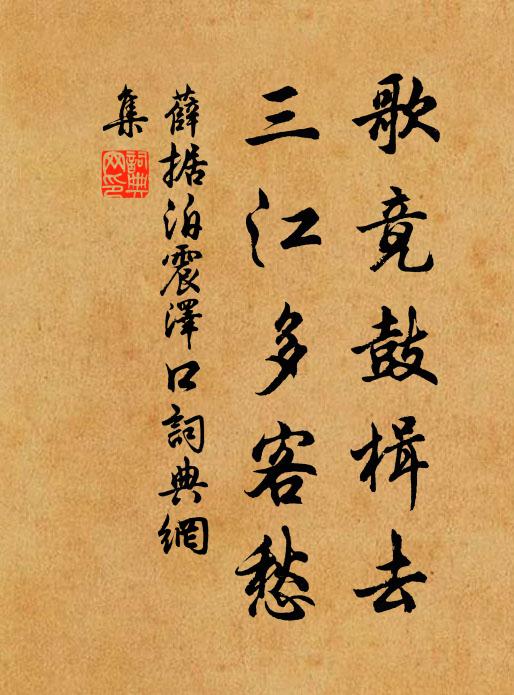 歌竟鼓楫去
三江多客愁
薛据泊震澤口詞典網
集
詞典網印